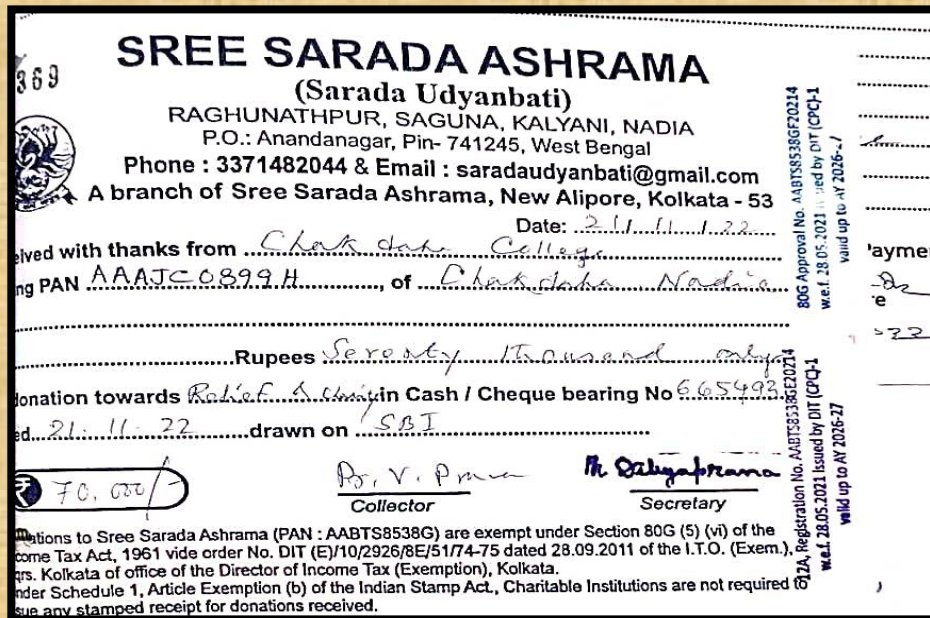 369
SREE SARADA ASHRAMA
(Sarada Udyanbati)
RAGHUNATHPUR, SAGUNA, KALYANI, NADIA
P.O.: Anandanagar, Pin- 741245, West Bengal
Phone : 3371482044 & Email : saradaudyanbati@gmail.com
A branch of Sree Sarada Ashrama, New Alipore, Kolkata - 53
Date: 21/11/22
eived with thanks from Chakdaha College
ng PAN AAAJC0899H, of Chakdaha Nadia
Rupees Seventy thousand only
donation towards Relief & in Cash / Cheque bearing No 665493
ed 21.11.22 drawn on SBI
₹ 70,000/-
Collector
Secretary
ations to Sree Sarada Ashrama (PAN : AABTS8538G) are exempt under Section 80G (5) (vi) of the
come Tax Act, 1961 vide order No. DIT (E)/10/2926/8E/51/74-75 dated 28.09.2011 of the I.T.O. (Exem.),
qrs. Kolkata of office of the Director of Income Tax (Exemption), Kolkata.
nder Schedule 1, Article Exemption (b) of the Indian Stamp Act., Charitable Institutions are not required to
sue any stamped receipt for donations received.
80G Approval No. AABTS8538GF20214
w.e.f. 28.05.2021 issued by DIT (CPC)-1
valid up to AY 2026-27
12A, Registration No. AABTS8538GE20214
w.e.f. 28.05.2021 Issued by DIT (CPC)-1
valid up to AY 2026-27
'ayme